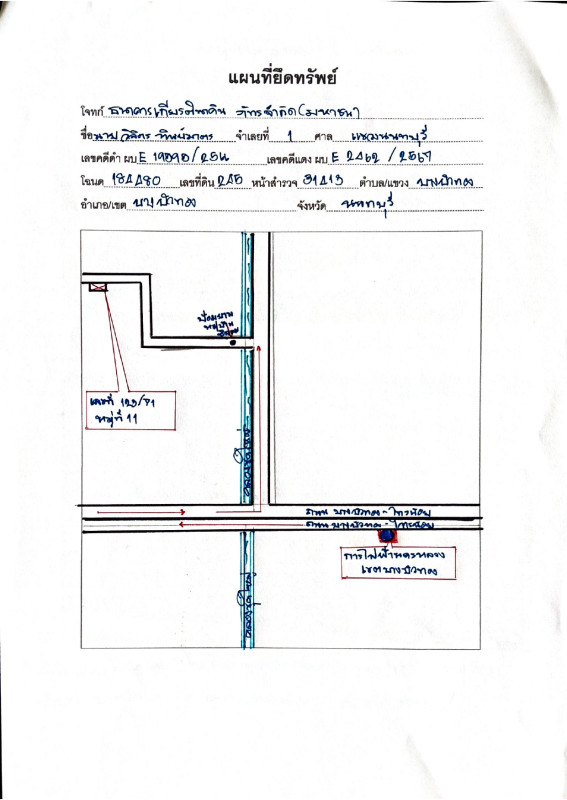 แผนที่ยึดทรัพย์
โจทก์ ธนาคารเกียรตินาคิน ภัทรจำกัด(มหาชน)
ชื่อ นาย จำเลยที่ 1 ศาล แขวงนนทบุรี
เลขคดีดำ ผบ E เลขคดีแดง ผบ E 2462 / 2567
โฉนด 184480 เลขที่ดิน 245 หน้าสำรวจ 31413 ตำบล/แขวง บางบัวทอง
อำเภอ/เขต บางบัวทอง จังหวัด นนทบุรี
ป้อมยาม
หมู่บ้าน
เลขที่ 123/71
หมู่ที่ 11
ถนน บางบัวทอง-ไทรน้อย
ถนน บางบัวทอง-ไทรน้อย
การไฟฟ้านครหลวง
เขตบางบัวทอง